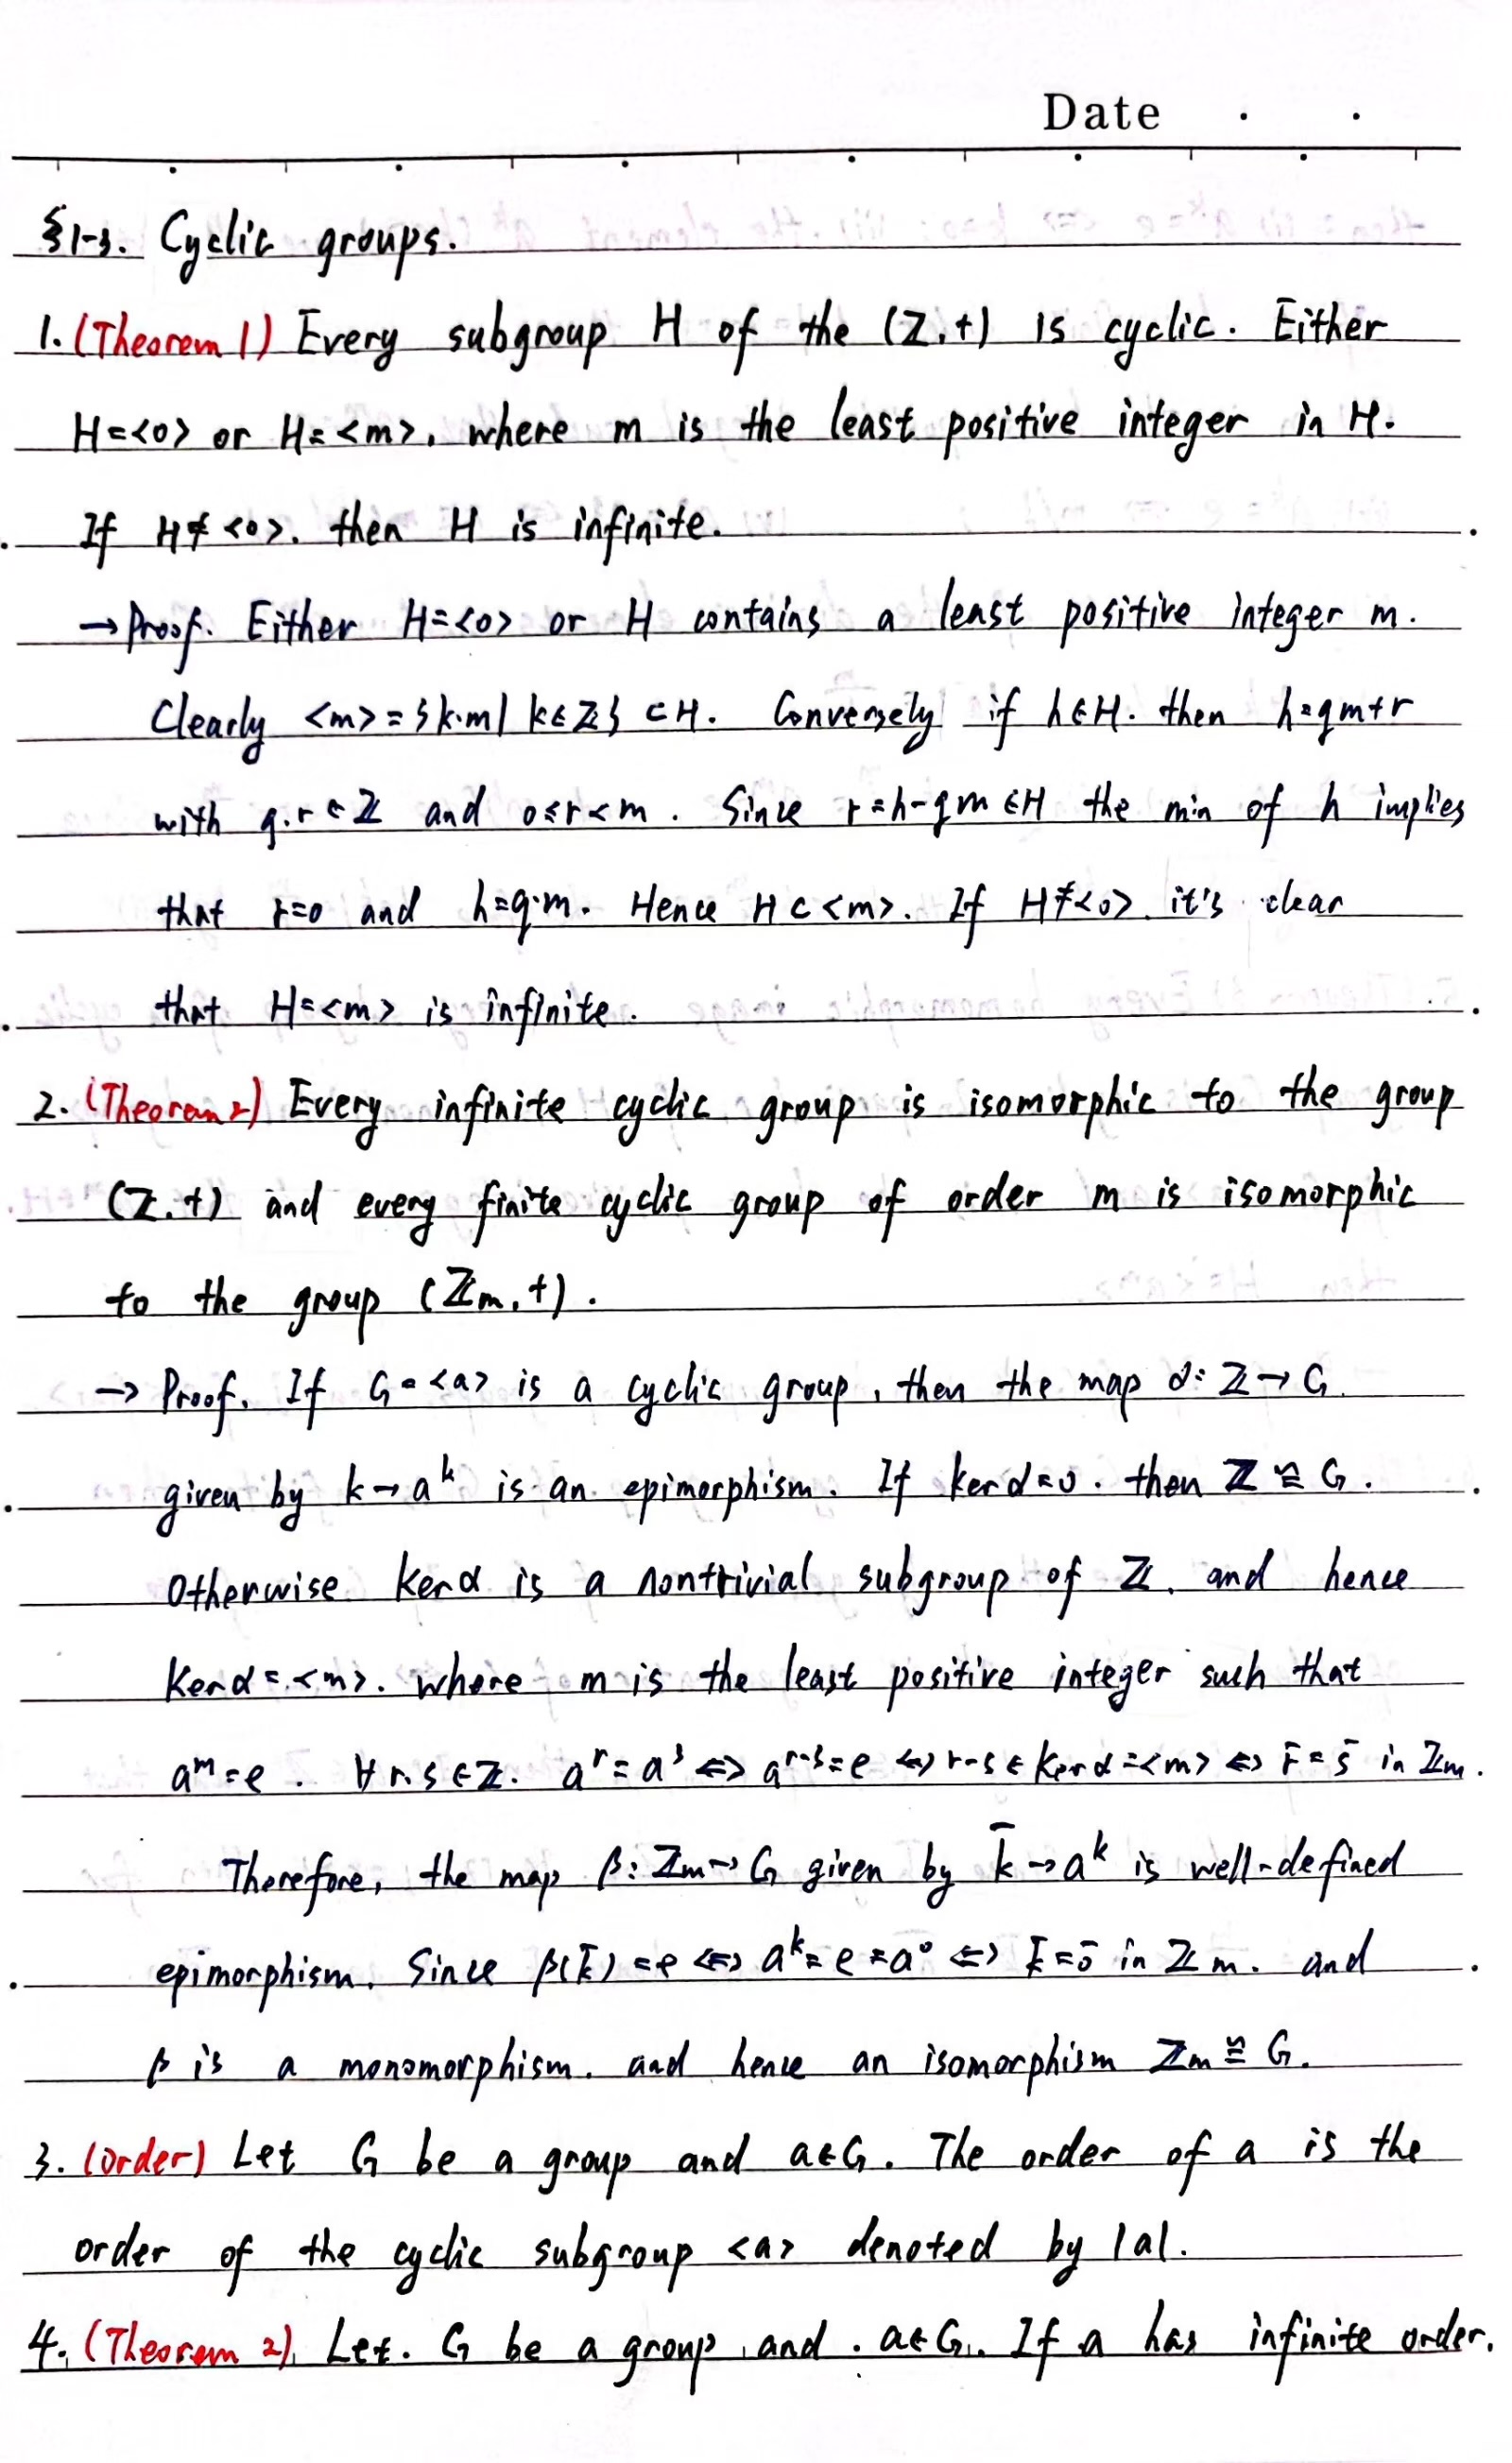 Date . .
§1-3. Cyclic groups.
1. (Theorem 1) Every subgroup H of the (Z,+) is cyclic. Either
H=<0> or H=<m>, where m is the least positive integer in H.
If H≠<0>, then H is infinite.
→Proof. Either H=<0> or H contains a least positive integer m.
Clearly <m>={k·m| k∈ℤ} ⊂H. Conversely if h∈H. then h=qm+r
with q,r∈ℤ and 0≤r<m. Since r=h-qm∈H the min of h implies
that r=0 and h=q·m. Hence H⊂<m>. If H≠<0>, it's clear
that H=<m> is infinite.
2. (Theorem 2) Every infinite cyclic group is isomorphic to the group
(Z,+) and every finite cyclic group of order m is isomorphic
to the group (ℤm,+).
→ Proof. If G=<a> is a cyclic group, then the map α: ℤ→G
given by k→a^k is an epimorphism. If kerα=0. then ℤ≅G.
Otherwise kerα is a nontrivial subgroup of ℤ, and hence
Kerα=<m>. where m is the least positive integer such that
a^m=e. ∀r,s∈ℤ. a^r=a^s ⇔ a^{r-s}=e ⇔ r-s∈Kerα=<m> ⇔ r̄=s̄ in ℤm.
Therefore, the map β: ℤm→G given by k̄→a^k is well-defined
epimorphism. Since β(k̄)=e ⇔ a^k=e=a^0 ⇔ k̄=0̄ in ℤm. and
β is a monomorphism. and hence an isomorphism ℤm≅G.
3. (order) Let G be a group and a∈G. The order of a is the
order of the cyclic subgroup <a> denoted by |a|.
4. (Theorem 2). Let. G be a group and. a∈G. If a has infinite order.